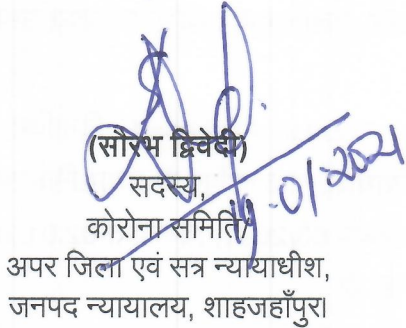 (सौरभ द्विवेदी)
सदस्य,
कोरोना समिति/
अपर जिला एवं सत्र न्यायाधीश,
जनपद न्यायालय, शाहजहाँपुर।